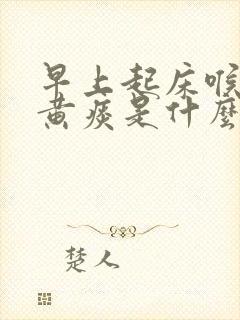 早上起床喉
黄痰是什麽
楚人